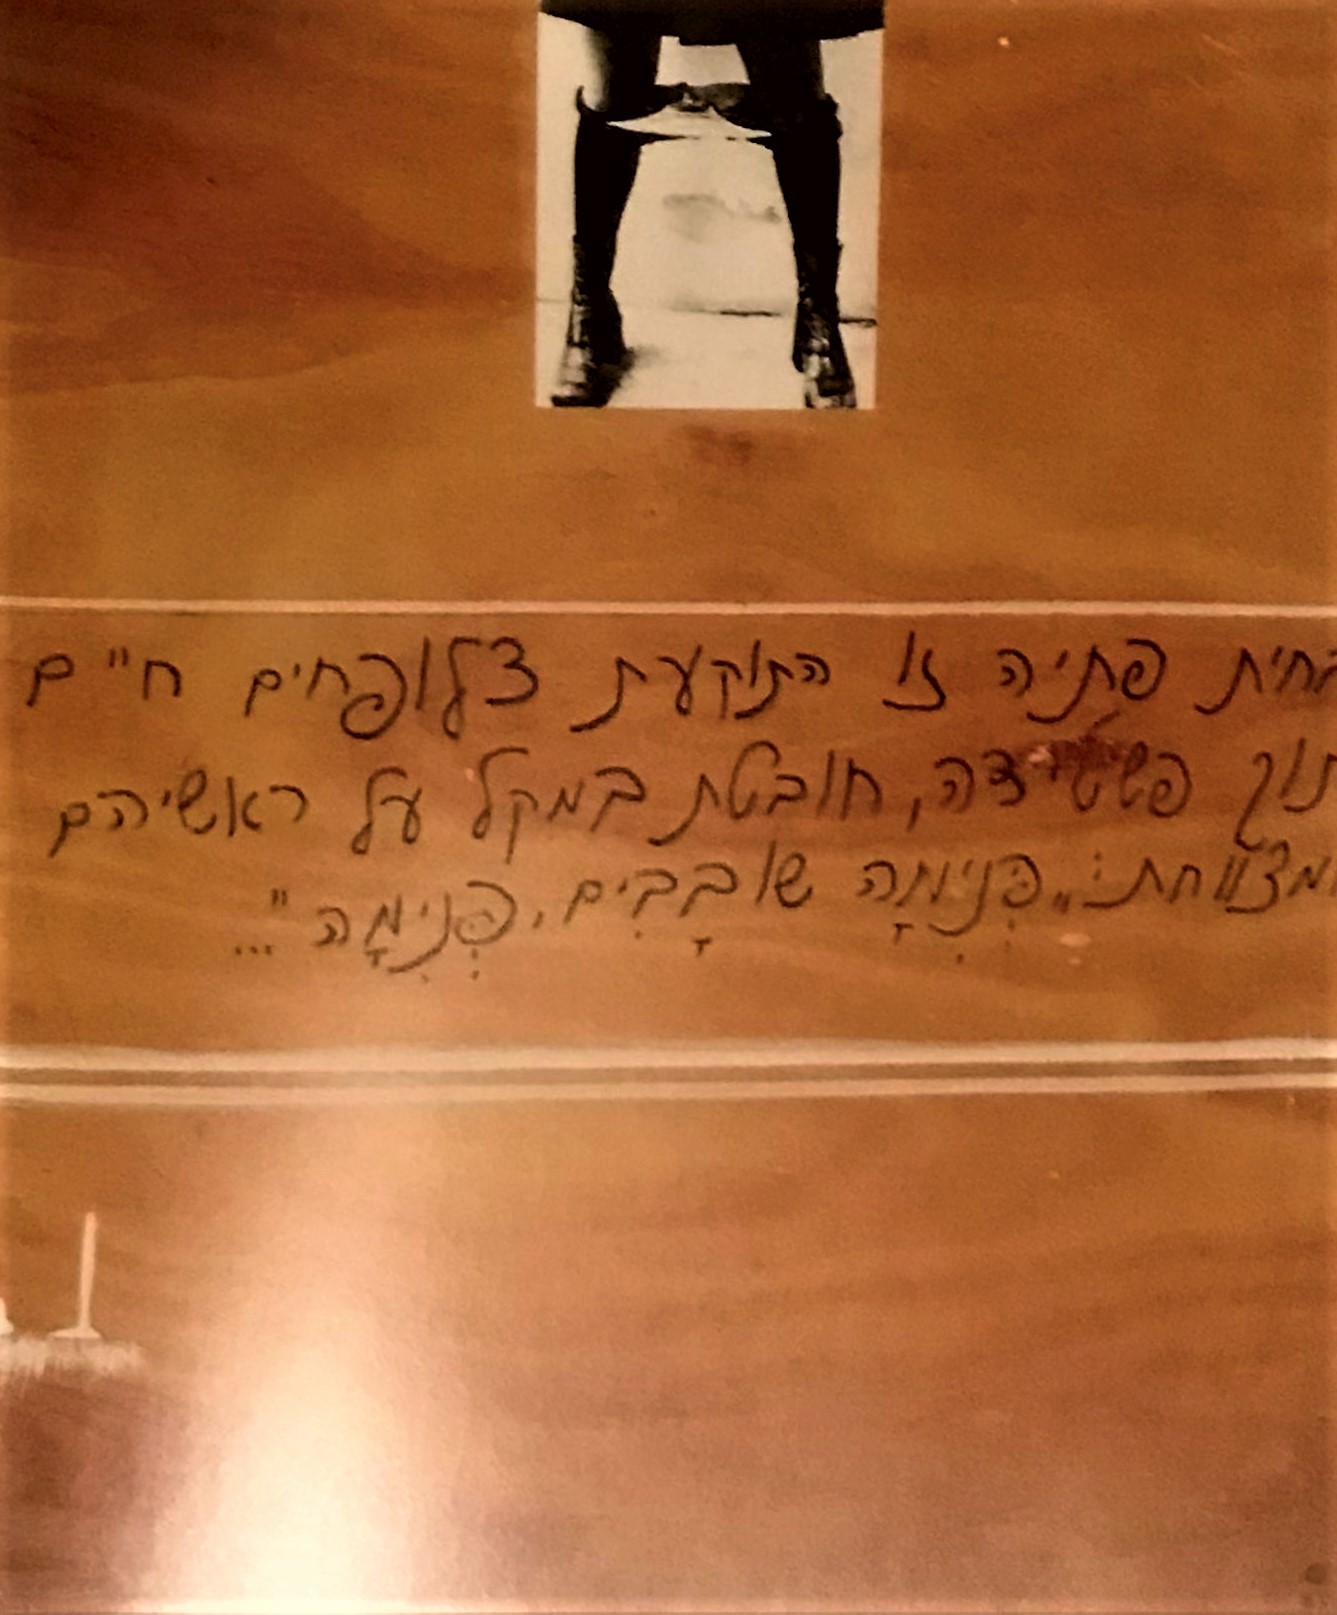 פתיה זו התוקעת צלופחים חיים
תוך פשטידה, חובטת במקל על ראשיהם
ומצווחת: „פְּנִימָה שובָבִים, פְּנִימָה"...